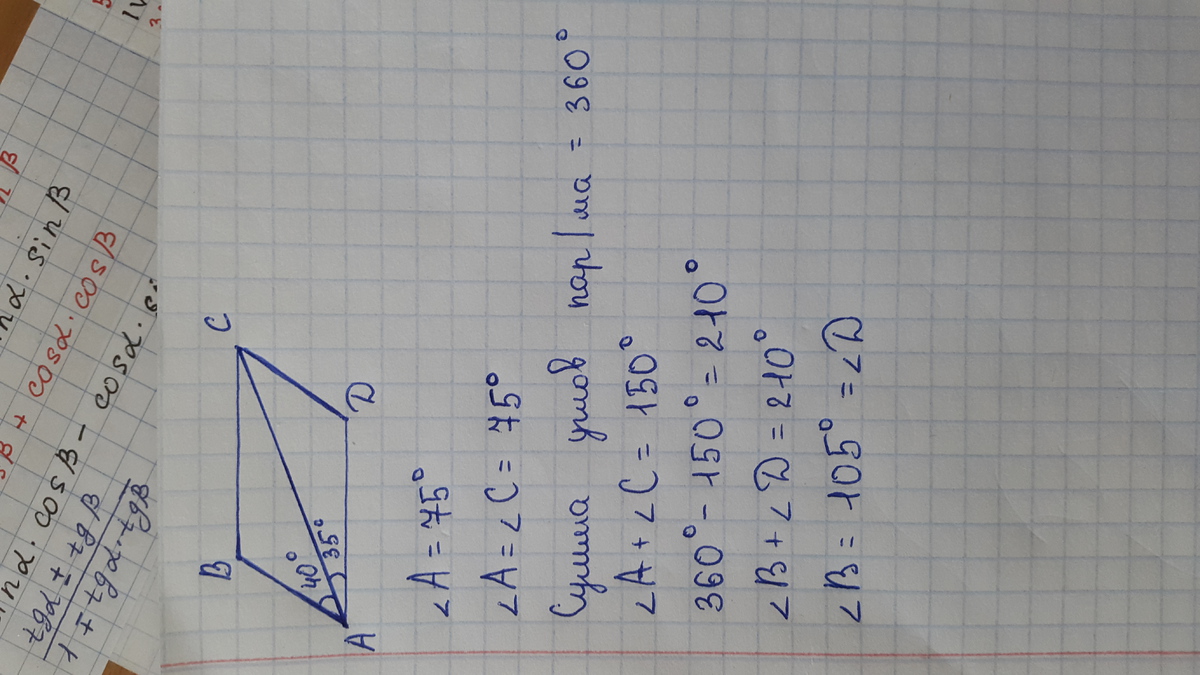 B
C
40°
35°
A
D
∠A = 75°
∠A = ∠C = 75°
Сумма углов пар/ма = 360°
∠A + ∠C = 150°
360° - 150° = 210°
∠B + ∠D = 210°
∠B = 105° = ∠D
sinα · sinβ
sβ + cosα · cosβ
sinα · cosβ - cosα · si
tgα ± tgβ
1 ∓ tgα · tgβ